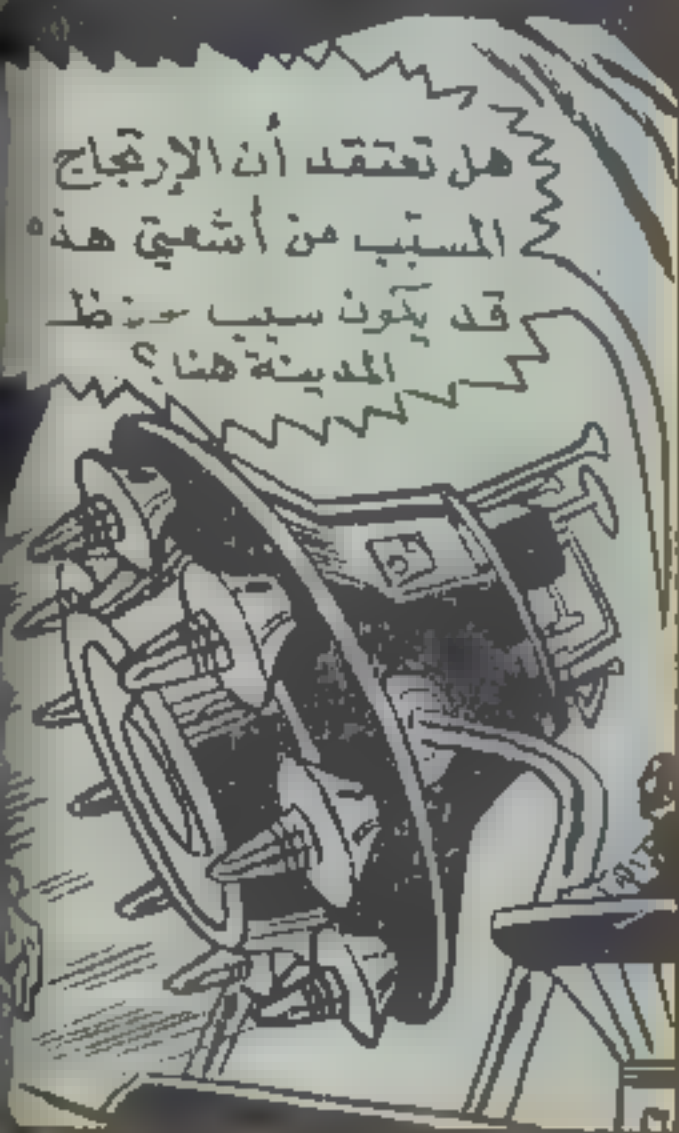 هل تعتقد أن الإرتجاج
المسبّب من أشعتي هذه
قد يكون سبب
المدينة هنا؟